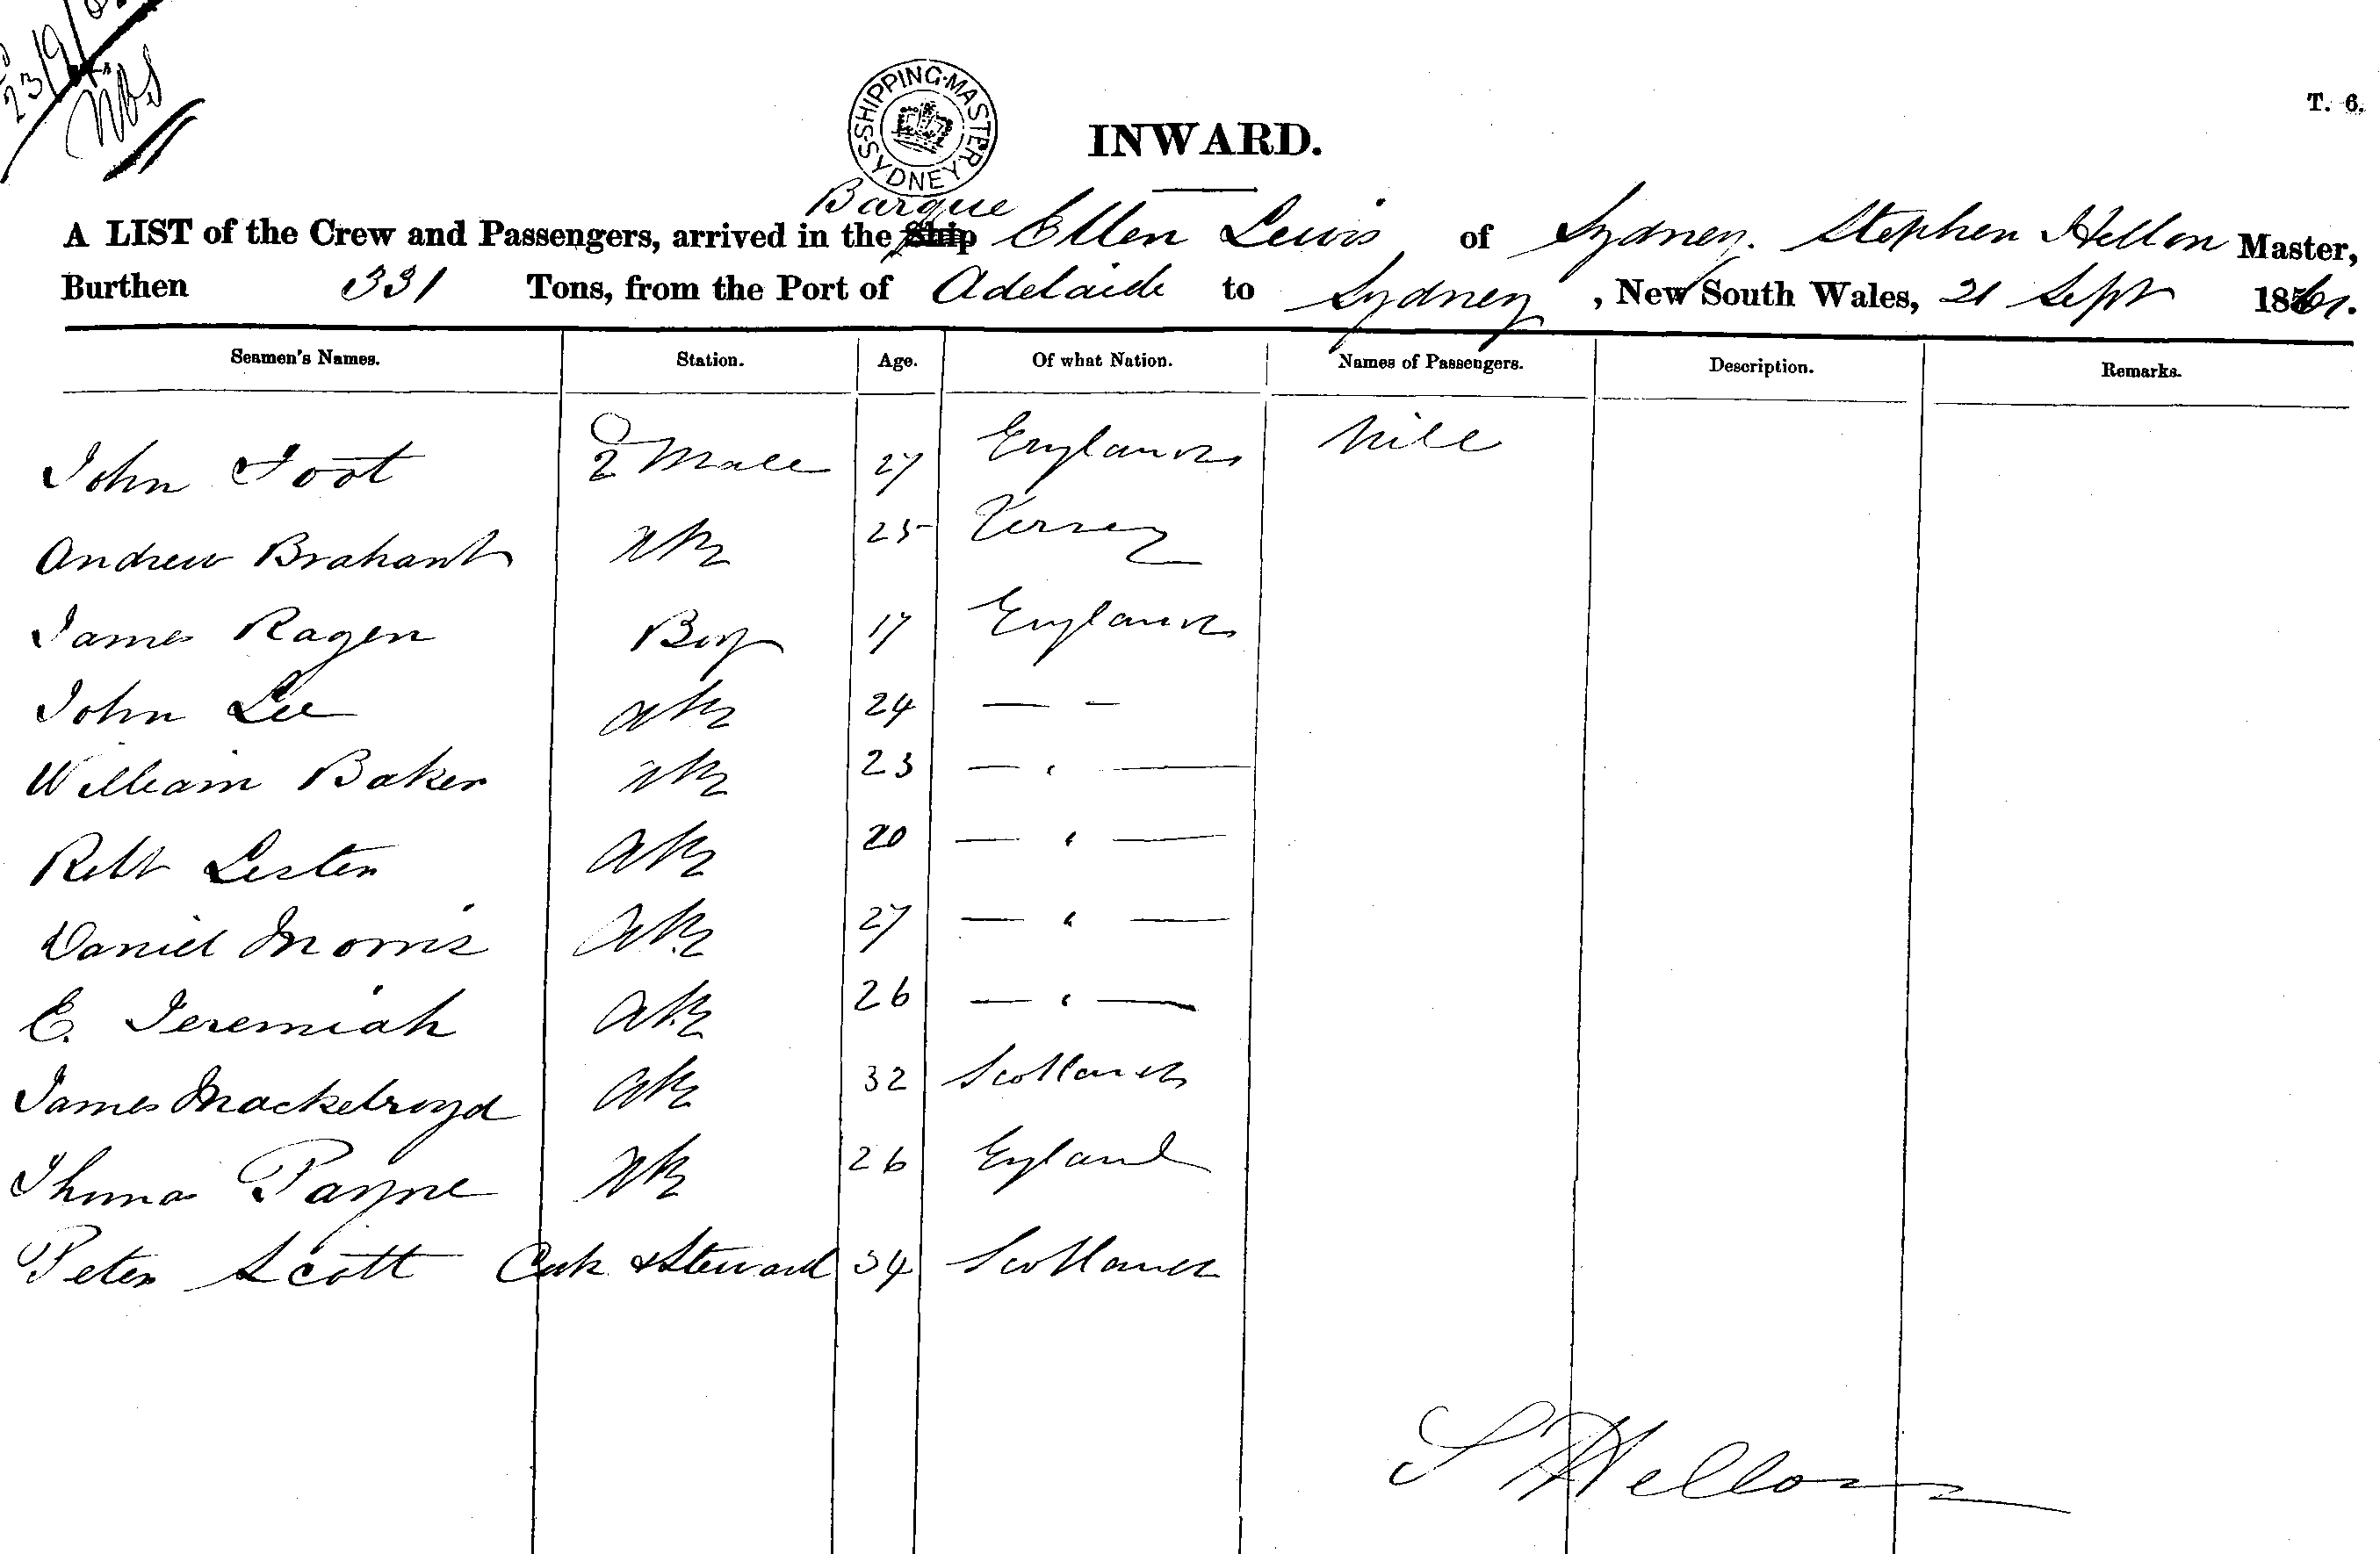 23/9/
SHIPPING MASTER SYDNEY
T. 6.
INWARD.
Barque
A LIST of the Crew and Passengers, arrived in the Ship Ellen Lewis of Sydney. Stephen Hellon Master,
Burthen 331 Tons, from the Port of Adelaide to Sydney, New South Wales, 21 Sept 1861.
Seamen's Names. Station. Age. Of what Nation. Names of Passengers. Description. Remarks.
John Foot 2 Mate 27 England Nill
Andrew Brahant AB 25 Jersey
James Ragen Boy 17 England
John Lee AB 24 — -
William Baker AB 23 — " —
Robt Lester AB 20 — " —
Daniel Morris AB 27 — " —
E. Jeremiah AB 26 — " —
James Mackelroyd AB 32 Scotland
Thomas Payne AB 26 England
Peter Scott Cook & Steward 34 Scotland
S Hellon